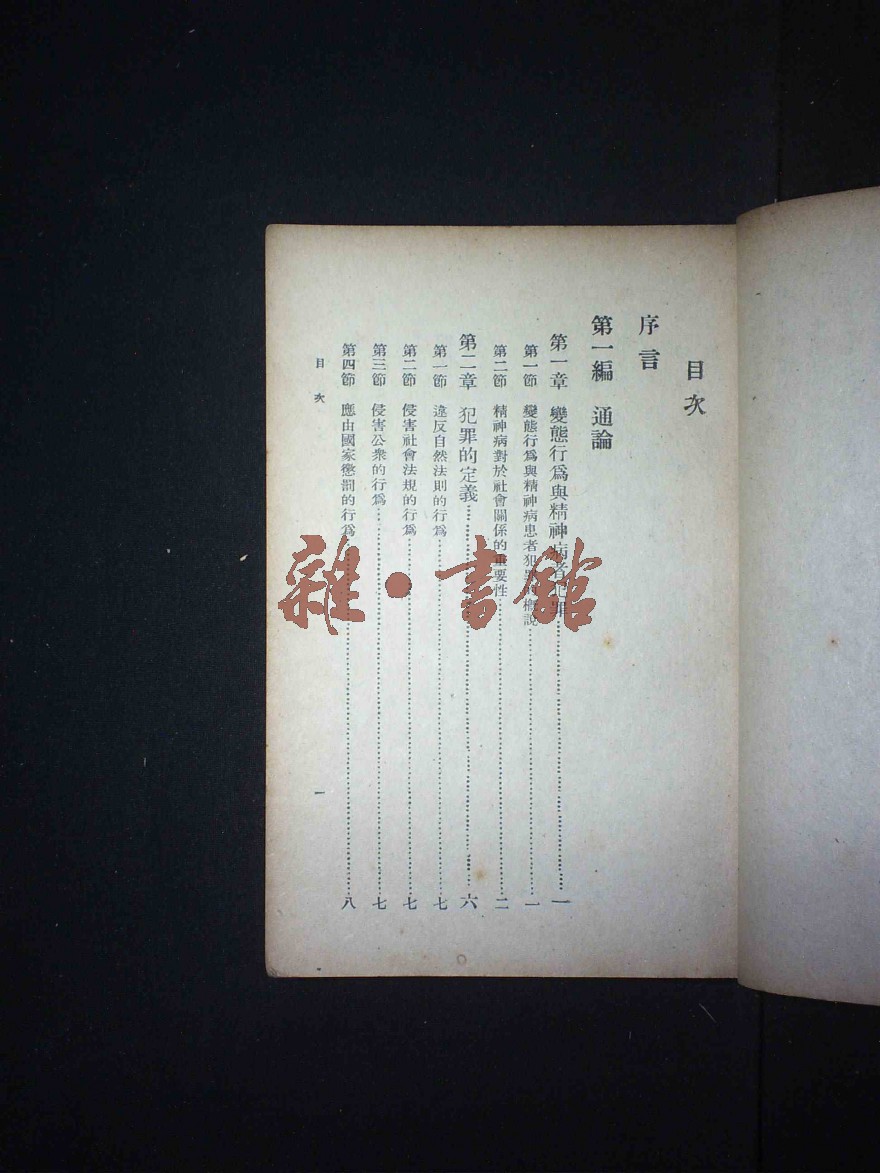 目次
序言
第一編　通論
第一章　變態行爲與精神病者犯罪……一
第一節　變態行爲與精神病患者犯罪的概說……一
第二節　精神病對於社會關係的重要性……二
第二章　犯罪的定義……六
第一節　違反自然法則的行爲……七
第二節　侵害社會法規的行爲……七
第三節　侵害公衆的行爲……七
第四節　應由國家懲罰的行爲……八
目次
一
雜·書館